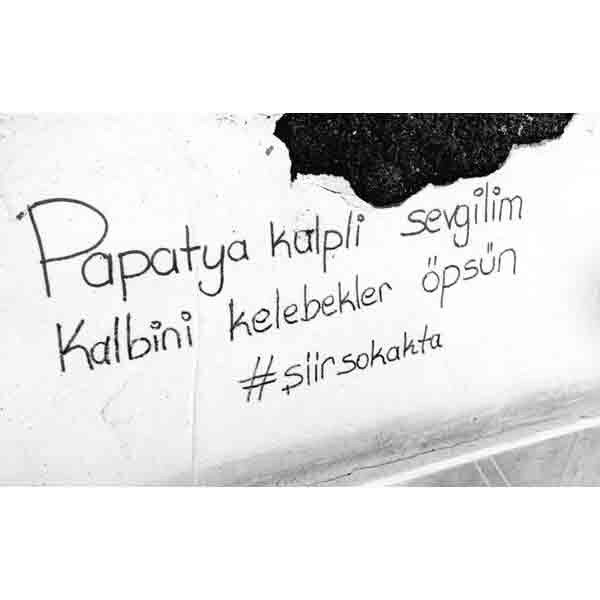 Papatya kalpli sevgilim
Kalbini kelebekler öpsün
#şiirsokakta